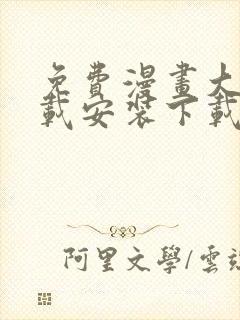 免費漫畫大
載安裝下載
阿里文學/雲